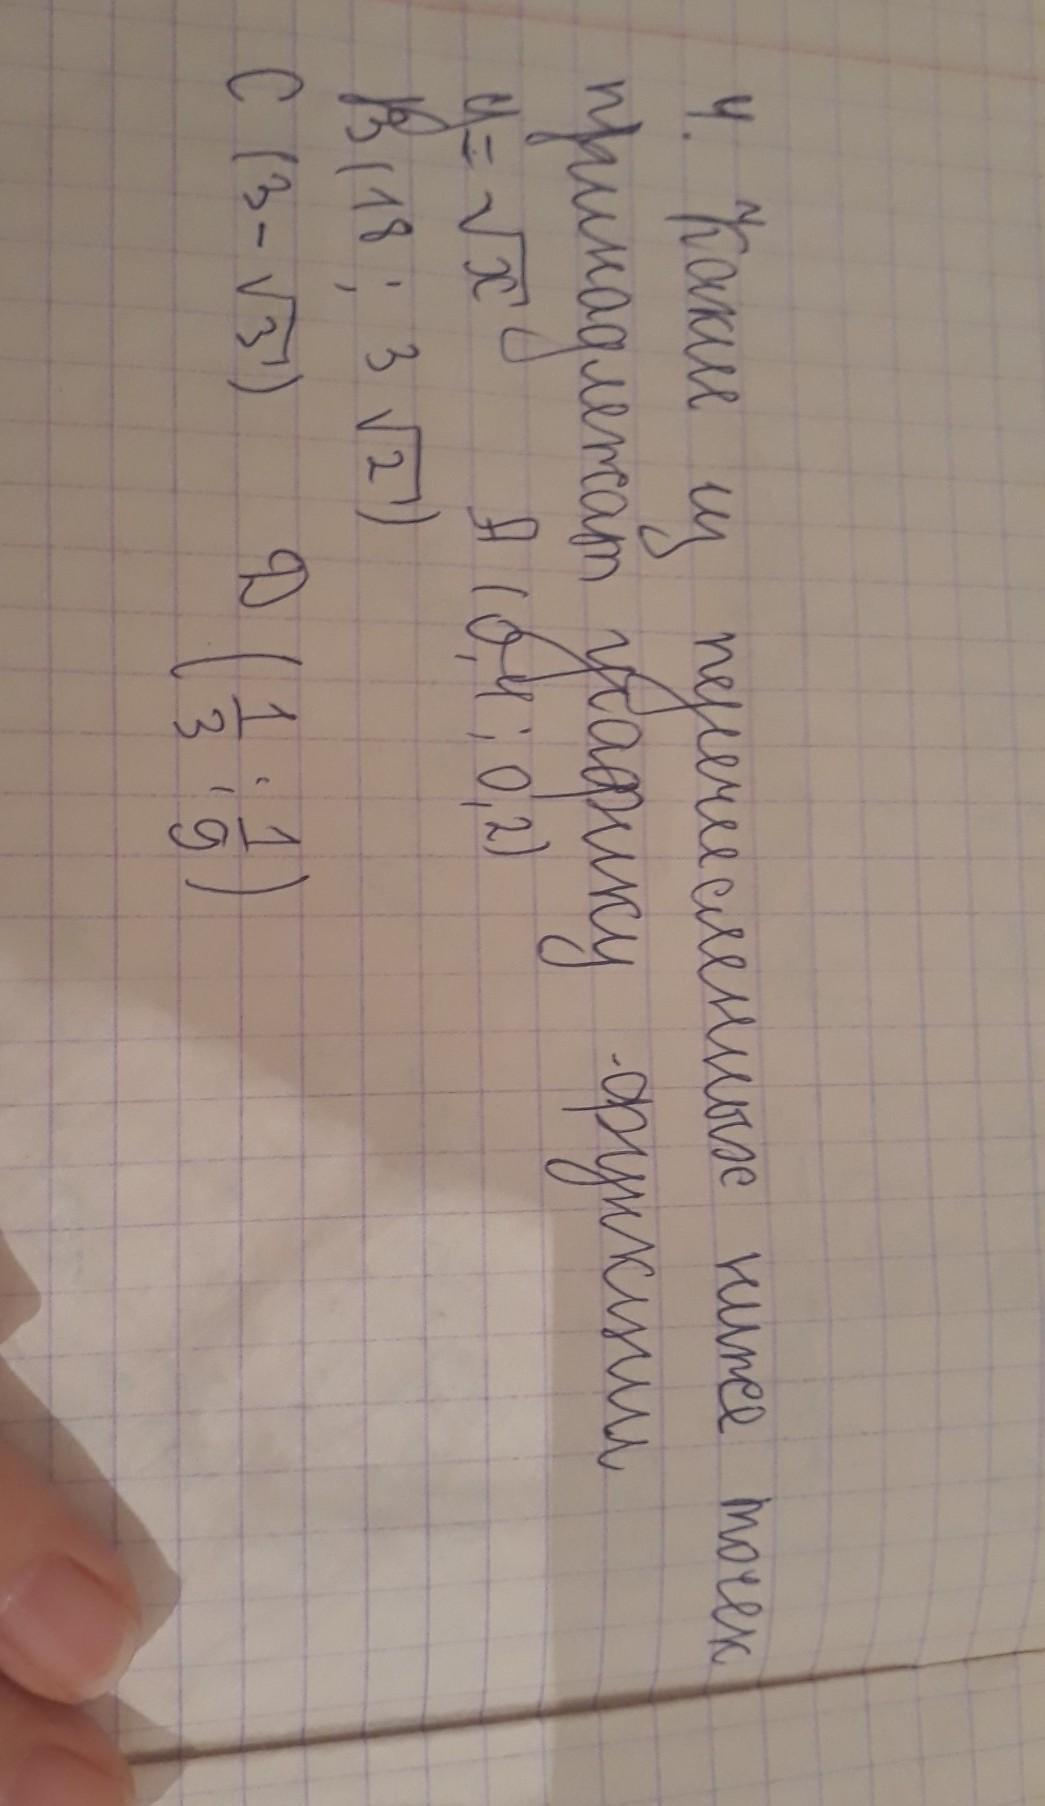 4. Какие из перечисленных ниже точек
принадлежат графику функции
y = √x A (0,4 ; 0,2)
B (18 ; 3√2)
C (3 - √3) D (1/3 ; 1/9)